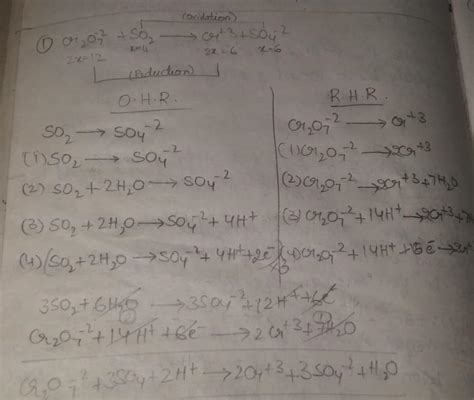 (oxidation)
① Cr₂O₇⁻² + SO₂ ⟶ Cr⁺³ + SO₄⁻²
2x=12 x=4 2x=6 x=6
(Reduction)
O.H.R.
SO₂ ⟶ SO₄⁻²
(1) SO₂ ⟶ SO₄⁻²
(2) SO₂ + 2H₂O ⟶ SO₄⁻²
(3) SO₂ + 2H₂O ⟶ SO₄⁻² + 4H⁺
(4) (SO₂ + 2H₂O ⟶ SO₄⁻² + 4H⁺ + 2e⁻
R.H.R.
Cr₂O₇⁻² ⟶ Cr⁺³
(1) Cr₂O₇⁻² ⟶ 2Cr⁺³
(2) Cr₂O₇⁻² ⟶ 2Cr⁺³ + 7H₂O
(3) Cr₂O₇⁻² + 14H⁺ ⟶ 2Cr⁺³ +
(4) Cr₂O₇⁻² + 14H⁺ + 6e⁻ ⟶
3SO₂ + 6H₂O ⟶ 3SO₄⁻² + 12H⁺ + 6e⁻
Cr₂O₇⁻² + 14H⁺ + 6e⁻ ⟶ 2Cr⁺³ + 7H₂O
Cr₂O₇⁻² + 3SO₂ + 2H⁺ ⟶ 2Cr⁺³ + 3SO₄⁻² + H₂O